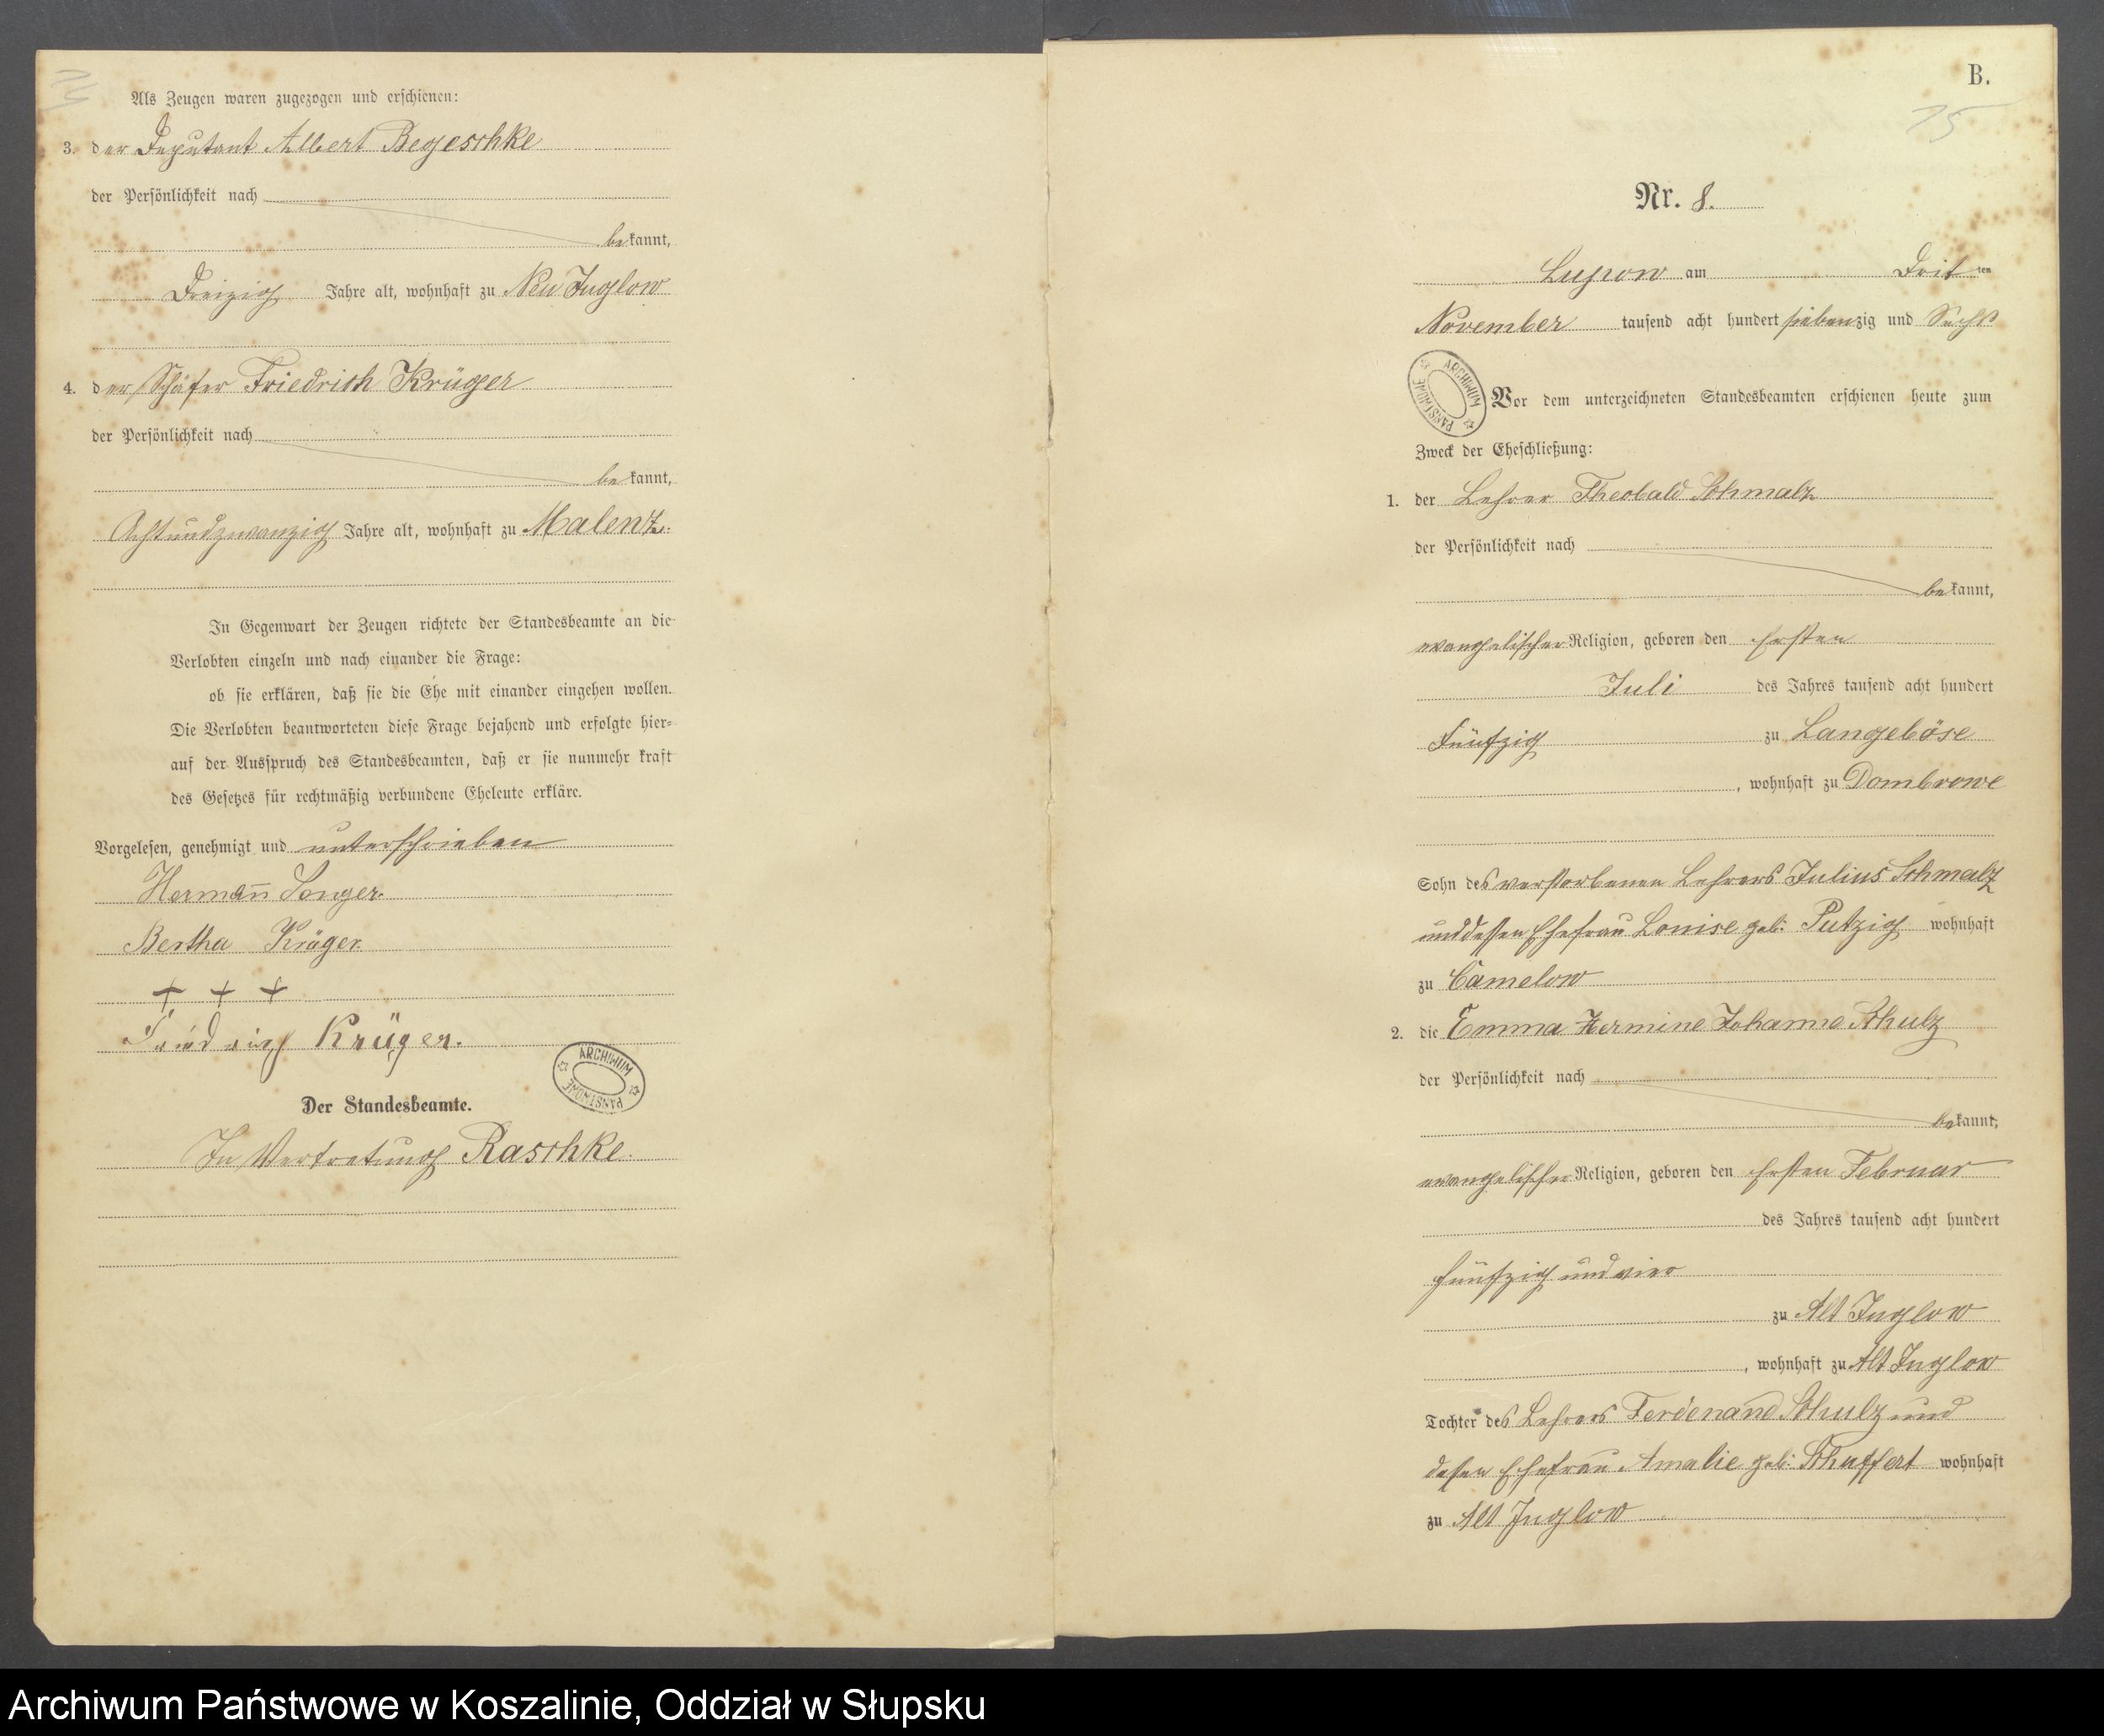 Als Zeugen waren zugezogen und erschienen:
3. der Deputant Albert Begeschke
der Persönlichkeit nach
bekannt,
Dreizig Jahre alt, wohnhaft zu Neu Juglow
4. der Schäfer Friedrich Krüger
der Persönlichkeit nach
bekannt,
Achtundzwanzig Jahre alt, wohnhaft zu Malenz.
In Gegenwart der Zeugen richtete der Standesbeamte an die
Verlobten einzeln und nach einander die Frage:
ob sie erklären, daß sie die Ehe mit einander eingehen wollen.
Die Verlobten beantworteten diese Frage bejahend und erfolgte hier-
auf der Ausspruch des Standesbeamten, daß er sie nunmehr kraft
des Gesetzes für rechtmäßig verbundene Eheleute erkläre.
Vorgelesen, genehmigt und unterschrieben
Hermann
Bertha Krüger
+ + +
Friedrich Krüger.
ARCHIWUM PAŃSTWOWE
Der Standesbeamte.
In Vertretung Raschke.
B.
75
Nr. 8.
Lupow am Dritten
November tausend acht hundert siebenzig und Sechs
ARCHIWUM PAŃSTWOWE
Vor dem unterzeichneten Standesbeamten erschienen heute zum
Zweck der Eheschließung:
1. der Lehrer Theobald Schmalz
der Persönlichkeit nach
bekannt,
evangelischer Religion, geboren den Ersten
Juli des Jahres tausend acht hundert
Fünfzig zu Langeböse
, wohnhaft zu Dombrowe
Sohn des verstorbenen Lehrers Julius Schmalz
und dessen Ehefrau Louise geb. Putzig wohnhaft
zu Camelow
2. die Emma Hermine Johanne Schulz
der Persönlichkeit nach
bekannt,
evangelischer Religion, geboren den Ersten Februar
des Jahres tausend acht hundert
fünfzig und vier
zu Alt Juglow
, wohnhaft zu Alt Juglow
Tochter des Lehrers Ferdenand Schulz und
dessen Ehefrau Amalie geb. Schuffert wohnhaft
zu Alt Juglow
Archiwum Państwowe w Koszalinie, Oddział w Słupsku